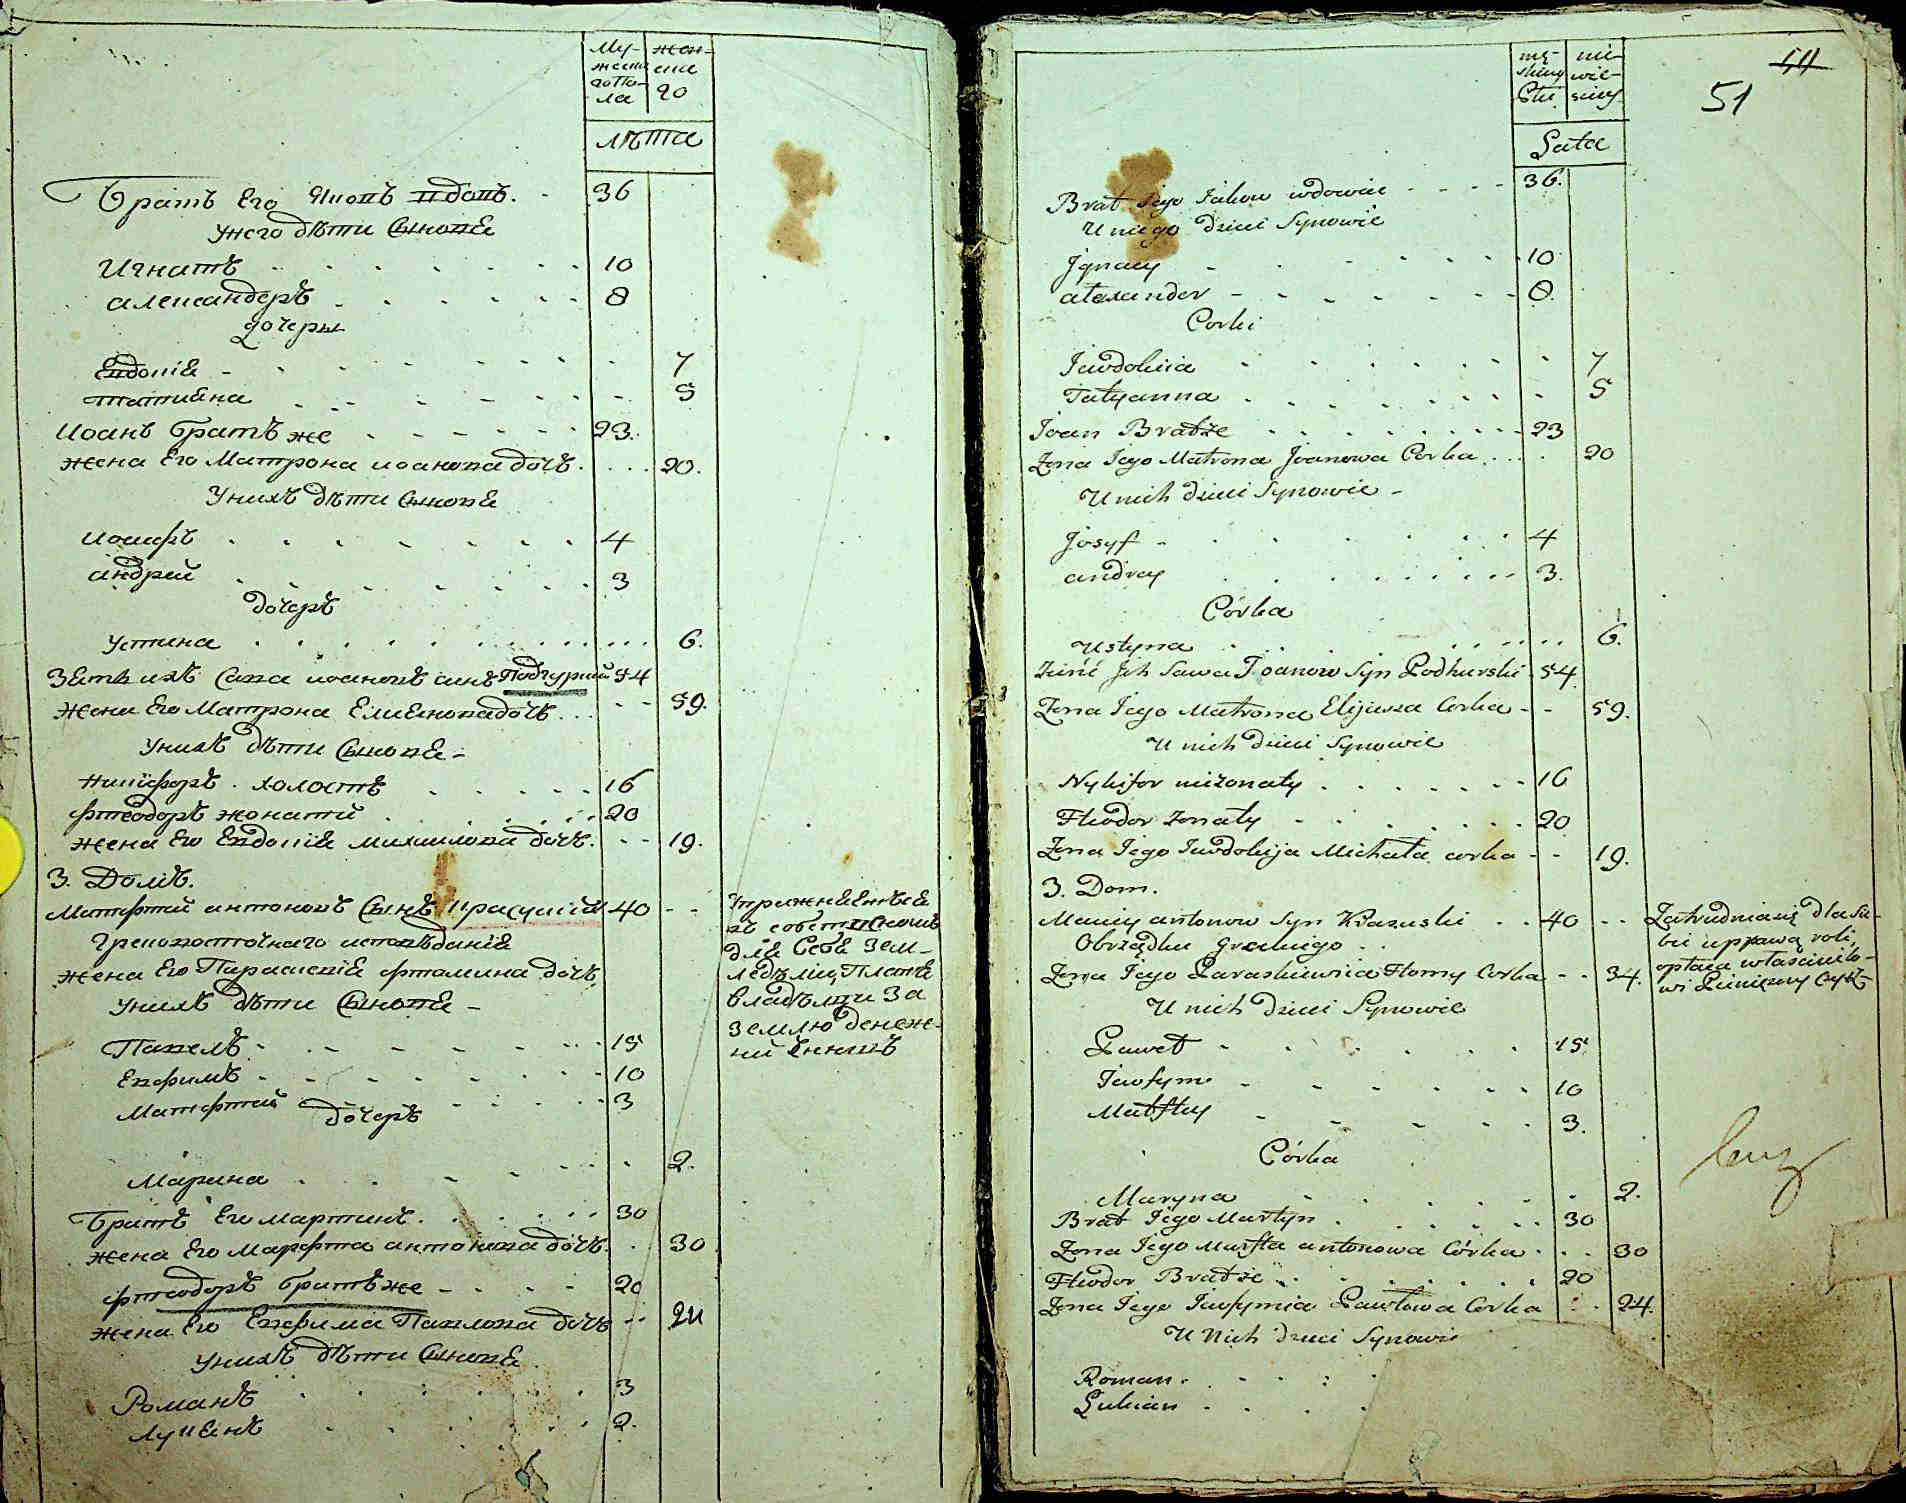 Му-
жеска
го по-
ла
жен-
ска
го
лѣта
Братъ Его Яковъ вдовъ. 36
У него дѣти Сыновя
Игнатъ 10
Александеръ 8
дочеры
Евдокія 7
Татияна 5
Иоанъ братъ же 23.
жена Его Матрона иоанова дочъ. 20.
У нихъ дѣти Сыновя
Иосифъ 4
Андрей 3
дочеръ
Устина 6.
Зять ихъ Сава иоановъ синъ Подгурский 54
жена Его Матрона Елияшова дочъ 59.
У нихъ дѣти Сыновя
Никифоръ холостъ 16
Фтеодоръ жонатий 20
жена Его Евдокія михайлова дочъ. 19.
3. Домъ.
Матфтей антоновъ Сынъ Красуский 40
Грековосточнаго исповѣданія
жена Его Параскевія фтомина дочъ
У нихъ дѣти Сыновя
Павелъ 15
Евфимъ 10
Матфтей 3
дочеръ
Марина 2.
Братъ Его мартинъ. 30
жена Его Марфта антонова дочъ. 30
фтеодоръ братъ же 20
жена Его Евфимія Павлова дочъ 24
У нихъ дѣти Сыновя
Романъ 3
Лукянъ 2.
упражняется
въ собственномъ
для Себя зем-
ледѣлиı, Платя
владѣлцу за
землю денеж-
ний чиншъ
mę-
skiey
Płci
nie-
wie-
sciey
Lata
44
51
Brat iego Jakow wdowiec 36.
U niego dzieci Synowie
Jgnacy 10
alexander 8.
Corki
Jewdokia 7
Tatyanna 5
Joan Bratże 23
Zona Jego Matrona Joanowa Corka 20
U nich dzieci Synowie
Josyf 4
andrey 3.
Córka
Ustyna 6.
Zięć Jch Sawa Joanow Syn Podhurski 54.
Zona Jego Matrona Elijasza Corka 59.
U nich dzieci Synowie
Nykifor nieżonaty 16
Fteodor żonaty 20
Zona Jego Jewdokija Michała corka 19.
3. Dom.
Maciey antonow Syn Krasuski 40
Obrządku greckiego
Zona Jego Paraskiewiia Ftomy Corka 34.
U nich dzieci Synowie
Paweł 15
Jewfym 10
Matftey 3.
Córka
Maryna 2.
Brat Jego Martyn 30
Zona Jego Marfta antonowa Córka 30
Fteodor Bratże 20
Zona Jego Jewfymia Pawłowa Corka 24.
U Nich dzieci Synowie
Roman
Lukian
Zatrudnia się dla Sie-
bie uprawą roli,
opłaca właścicielo-
wi Pieniężny Czynsz